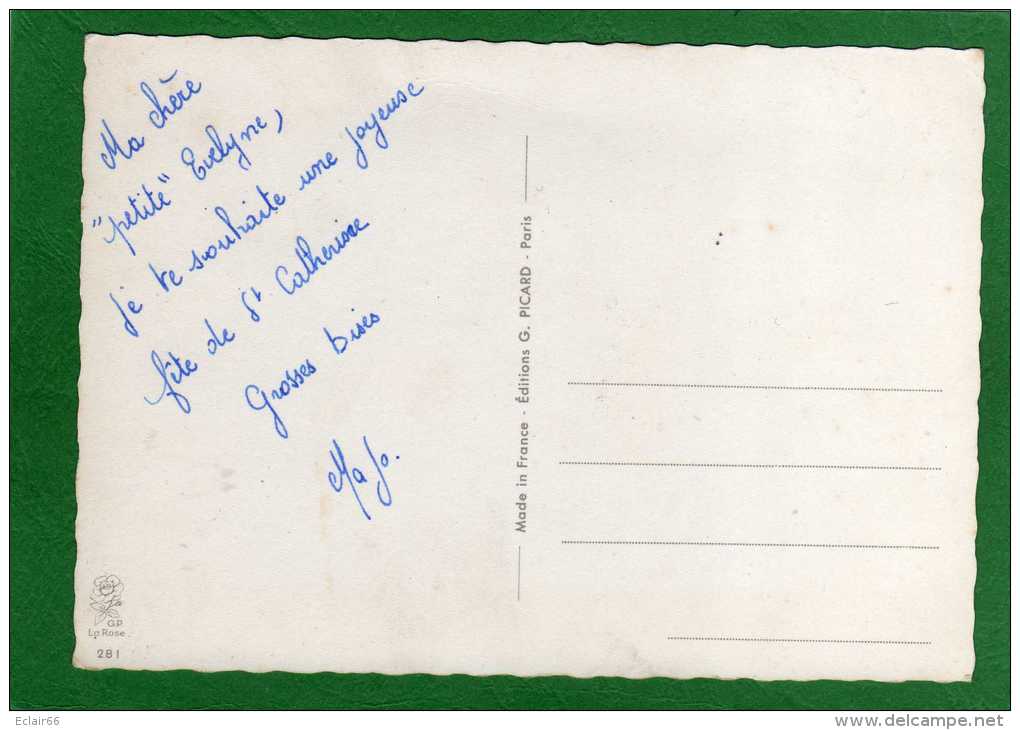 Ma chère
"petite" Evelyne,
je te souhaite une joyeuse
fête de St Catherine
Grosses bises
Ma Jo.
Made in France - Éditions G. PICARD - Paris
G.P.
La Rose
281
Eclair66
www.delcampe.net